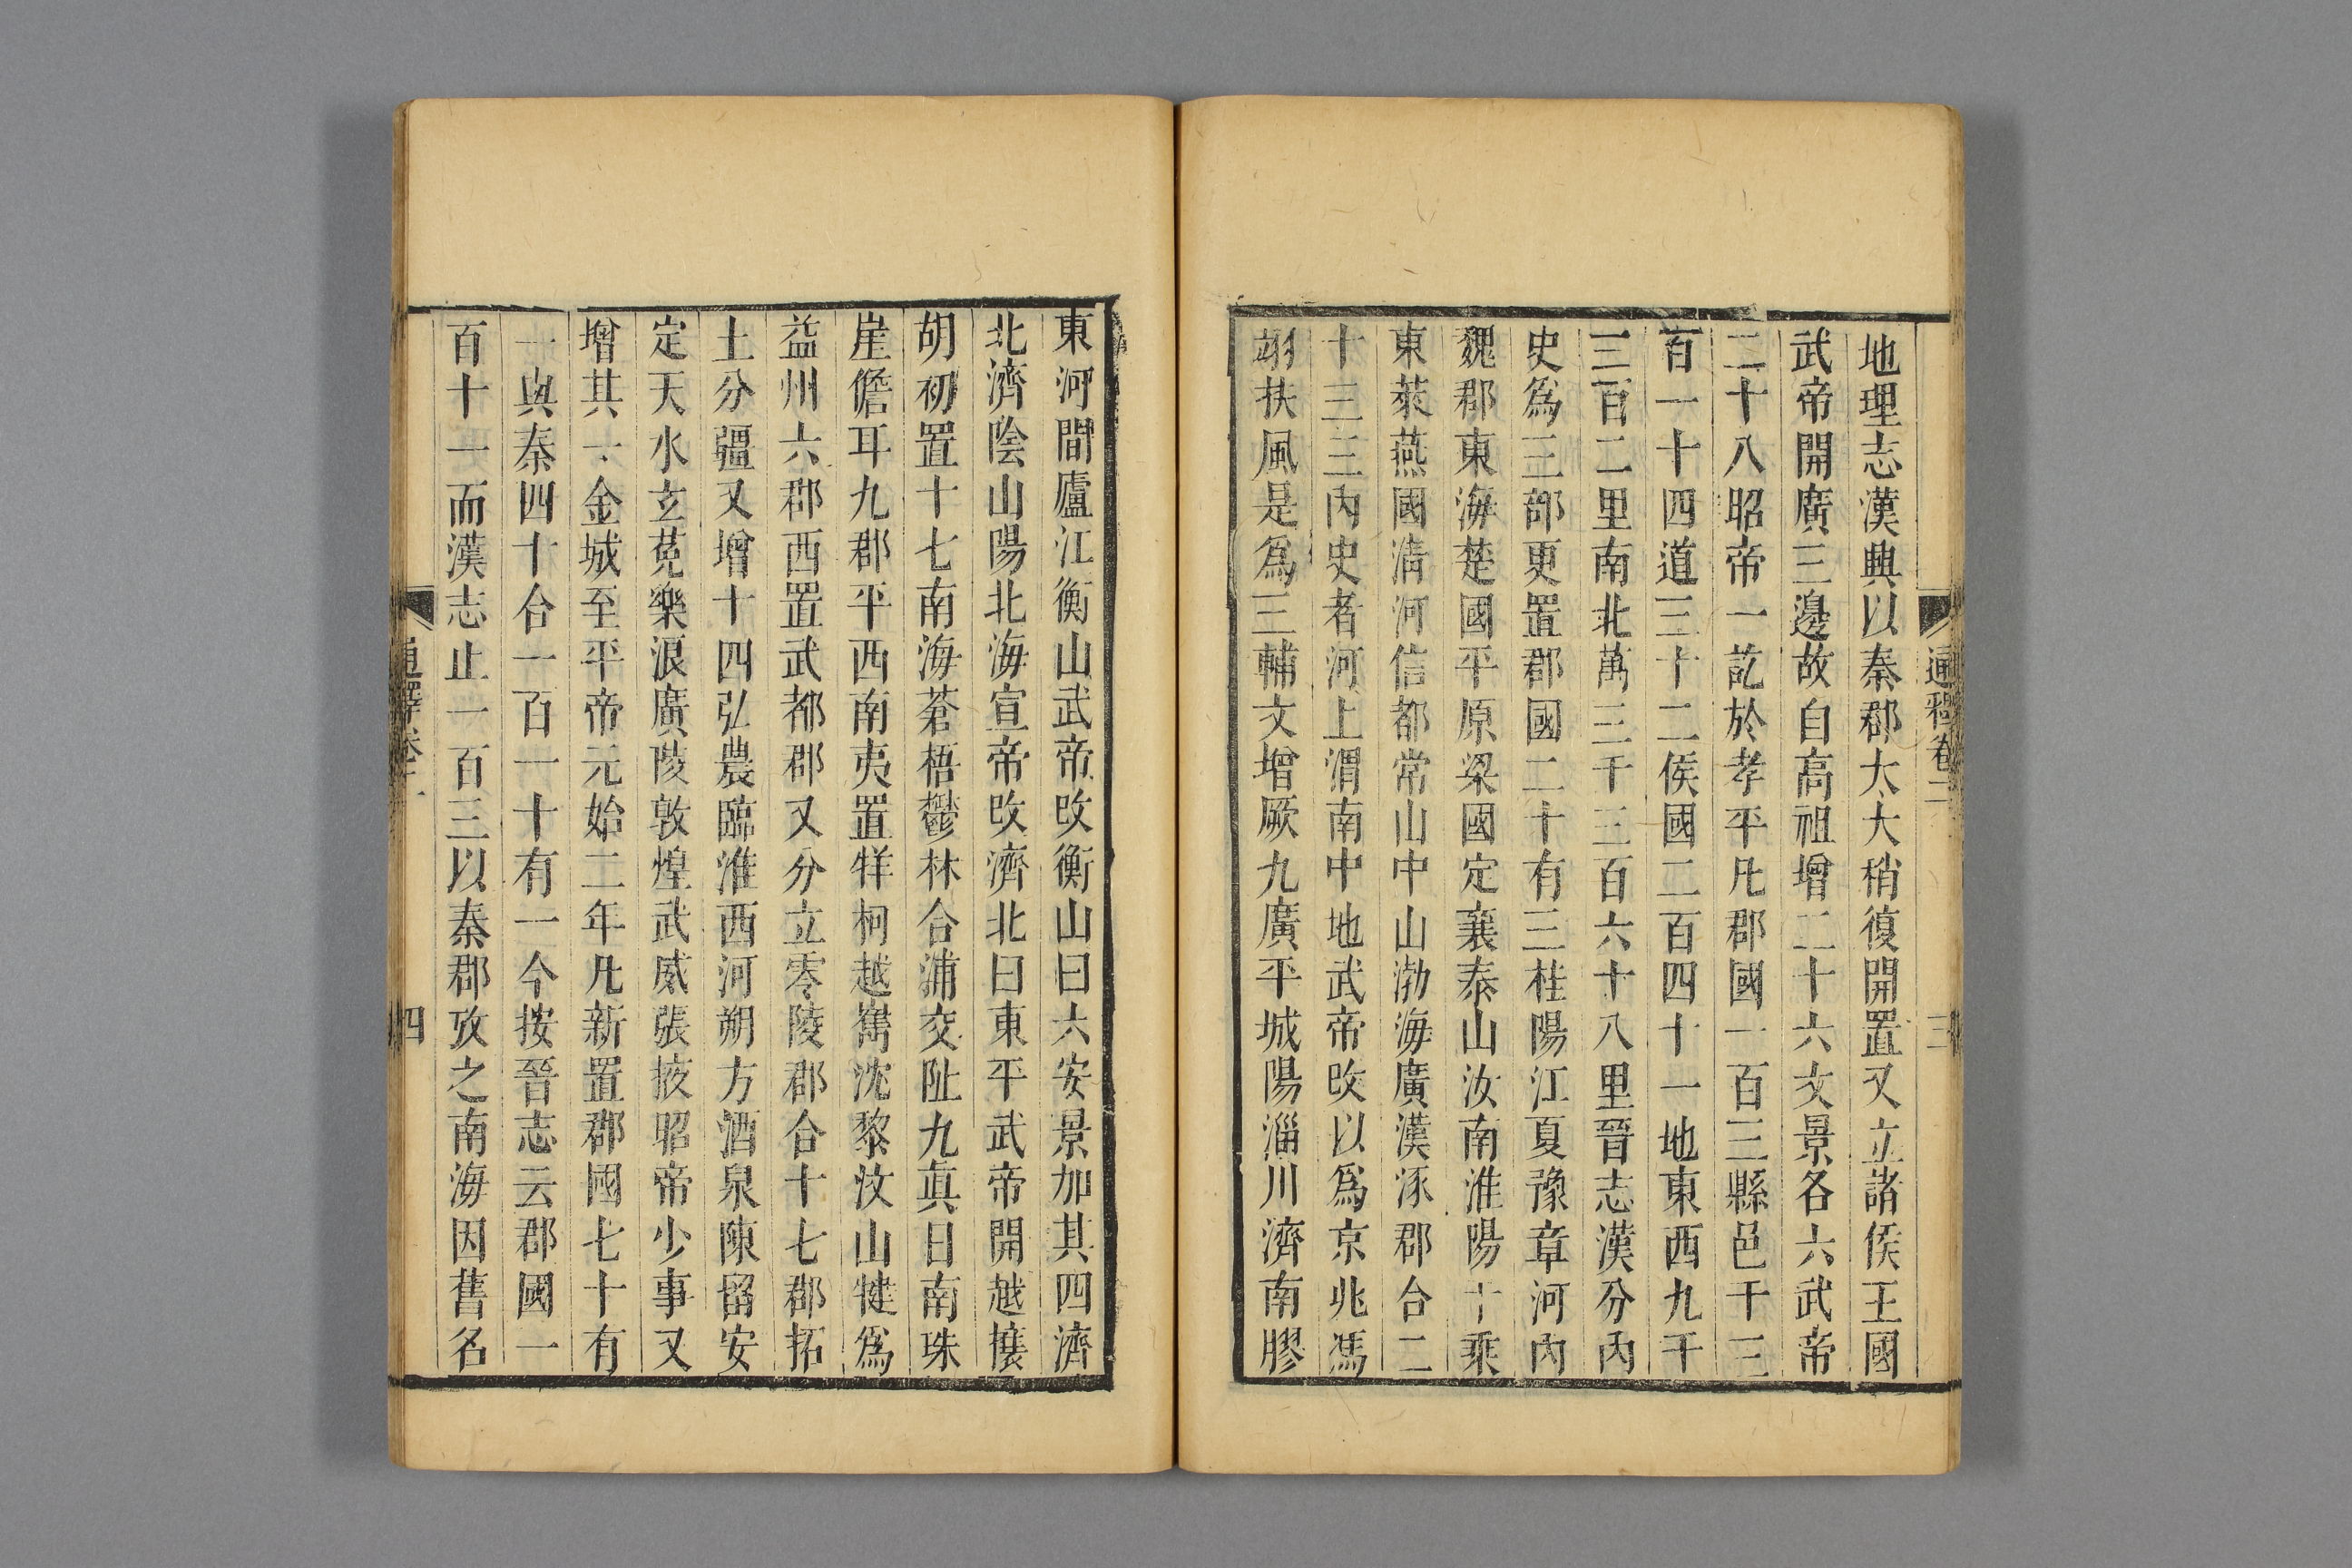 通釋卷二
三
地理志漢興以秦郡太大稍復開置又立諸侯王國
武帝開廣三邊故自高祖增二十六文景各六武帝
二十八昭帝一訖於孝平凡郡國一百三縣邑千三
百一十四道三十二侯國二百四十一地東西九千
三百二里南北萬三千三百六十八里晉志漢分內
史爲三部更置郡國二十有三桂陽江夏豫章河內
魏郡東海楚國平原梁國定襄泰山汝南淮陽十乘
東萊燕國淸河信都常山中山渤海廣漢涿郡合二
十三三內史者河上渭南中地武帝攺以爲京兆馮
翊扶風是爲三輔文增厥九廣平城陽淄川濟南膠
東河間廬江衡山武帝攺衡山曰六安景加其四濟
北濟陰山陽北海宣帝攺濟北曰東平武帝開越攘
胡初置十七南海蒼梧鬱林合浦交阯九眞日南珠
崖儋耳九郡平西南夷置牂柯越嶲沈黎汶山犍爲
益州六郡西置武都郡又分立零陵郡合十七郡拓
土分疆又增十四弘農臨淮西河朔方酒泉陳留安
定天水玄菟樂浪廣陵敦煌武威張掖昭帝少事又
增其一金城至平帝元始二年凡新置郡國七十有
一與秦四十合一百一十有一今按晉志云郡國一
百十一而漢志止一百三以秦郡攷之南海因舊名
通釋卷二
四